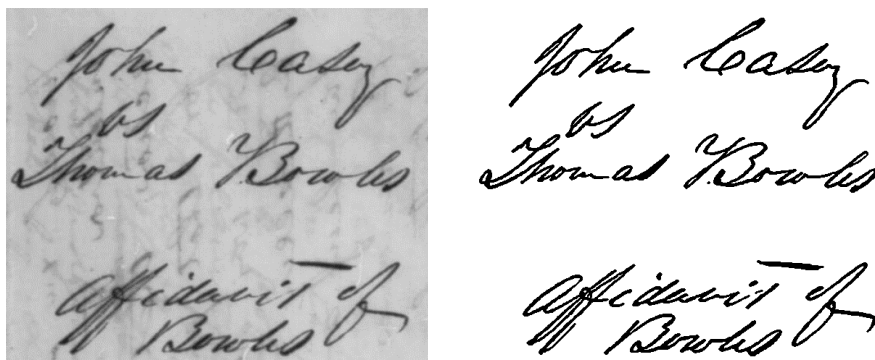 John Casey
vs
Thomas T. Bowles
Affidavit of
Bowles
John Casey
vs
Thomas T. Bowles
Affidavit of
Bowles